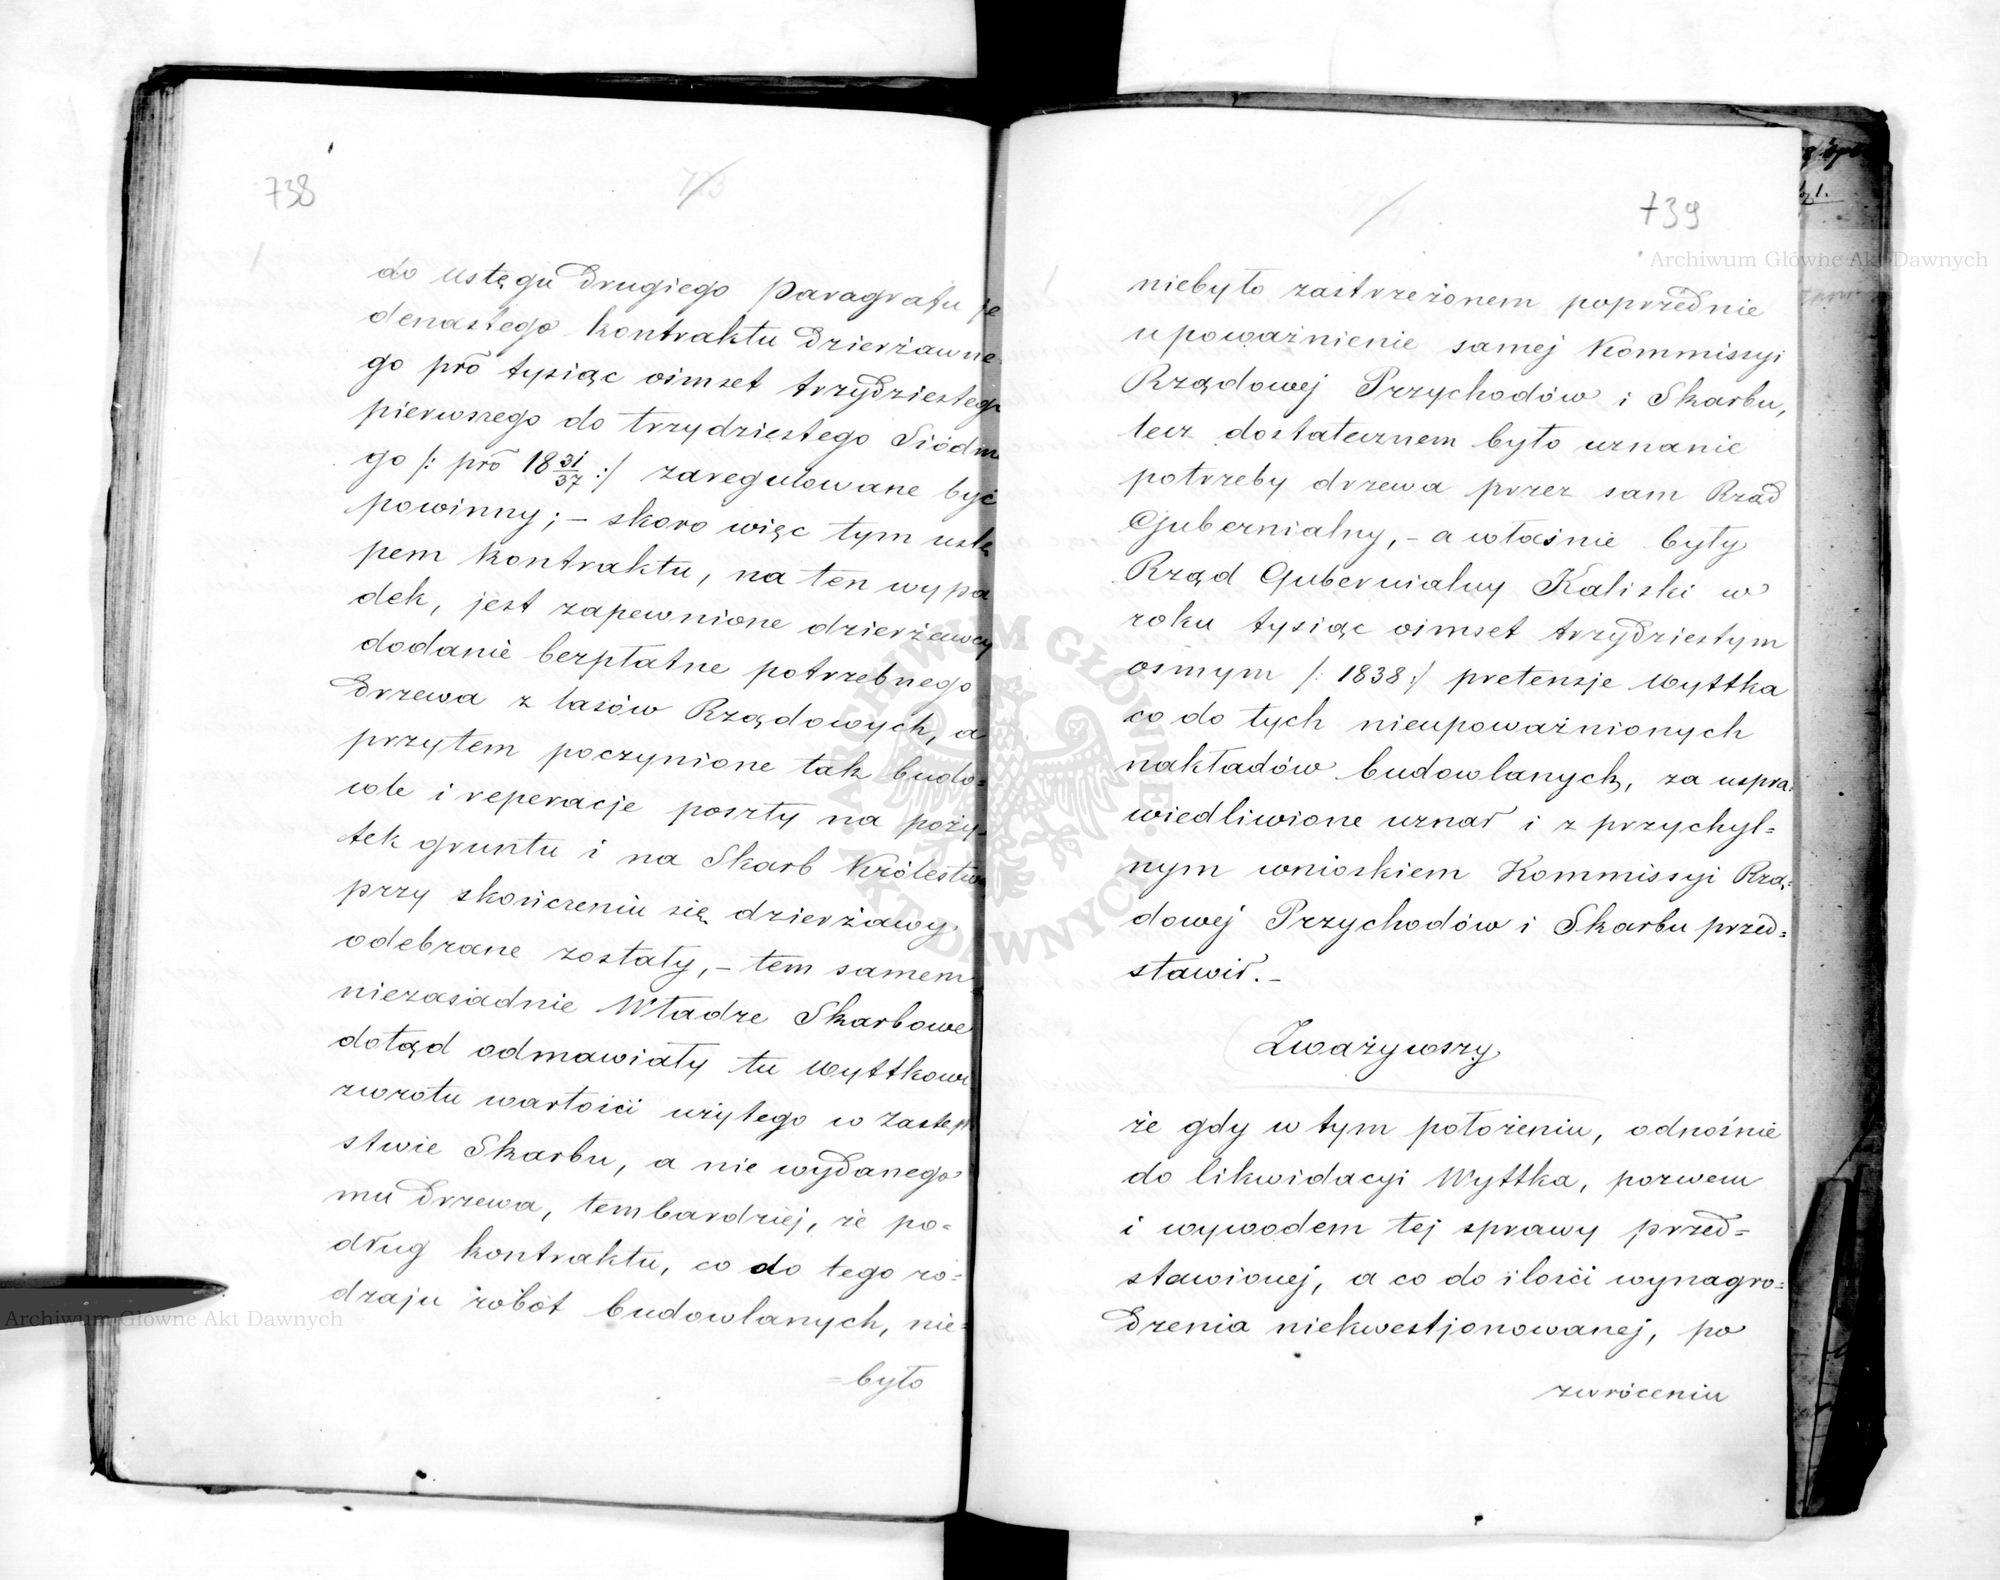 738
do ustęgu drugiego Paragrafu je
denastego kontraktu dzierżawne
go prõ tysiąc ośmset trzydziestego
pierwszego do trzydziestego Siódm
go /: prõ 18 31/37 :/ zaregulowane być
powinny; – skoro więc tym ustę
pem kontraktu, na ten wypa
dek, jest zapewnione dzierżawcy
dodanie bezpłatne potrzebnego
drzewa z lasów Rządowych, a
przytem poczynione tak budo=
wle i reperacje poszły na poży=
tek gruntu i na Skarb Królestwa
przy skończeniu się dzierżawy
odebrane zostały, – tem samem
niezasadnie Władze Skarbowe
dotąd odmawiały tu Wyttkowi
zwrotu wartości użytego w zastęp
stwie Skarbu, a nie wydanego
mu drzewa, tembardziej, że po=
dług kontraktu, co do tego ro=
dzaju robót budowlanych, nie=
=było
739
niebyło zastrzeżonem poprzednie
upoważnienie samej Kommissyi
Rządowej Przychodów i Skarbu,
lecz dostatecznem było uznanie
potrzeby drzewa przez sam Rząd
Gubernialny, – a właśnie były
Rząd Gubernialny Kaliski w
roku tysiąc ośmset trzydziestym
ósmym /: 1838 :/ pretensje Wyttka
co do tych nieupoważnionych
nakładów budowlanych, za uspra=
wiedliwione uznał i z przychyl=
nym wnioskiem Kommissyi Rzą=
dowej Przychodów i Skarbu przed=
stawił. –
Zważywszy
że gdy w tym położeniu, odnośnie
do likwidacyi Wyttka, pozwem
i wywodem tej sprawy przed=
stawionej, a co do ilości wynagro=
dzenia niekwestjonowanej, po
zwróceniu
Archiwum Główne Akt Dawnych
Archiwum Główne Akt Dawnych
ARCHIWUM GŁÓWNE AKT DAWNYCH